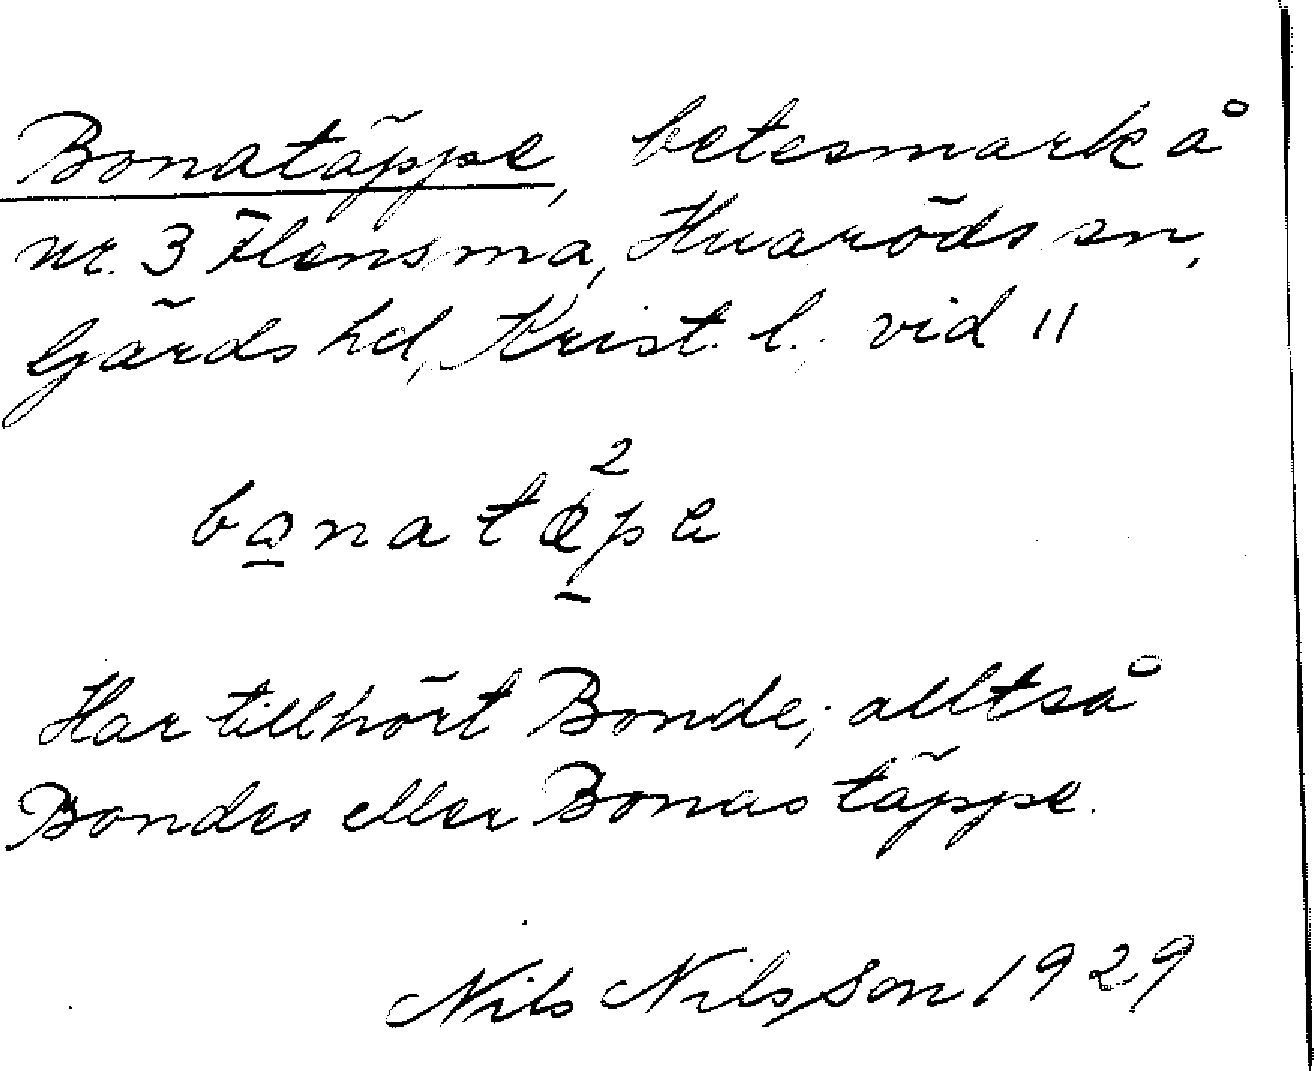 Bonatäppe, betesmark å
nr. 3 Flensma, Huaröds sn,
Gärds hd, Krist. l., vid 11
bo̲natæ̲²pe
Har tillhört Bonde; alltså
Bondes eller Bonas täppe.
Nils Nilsson 1929